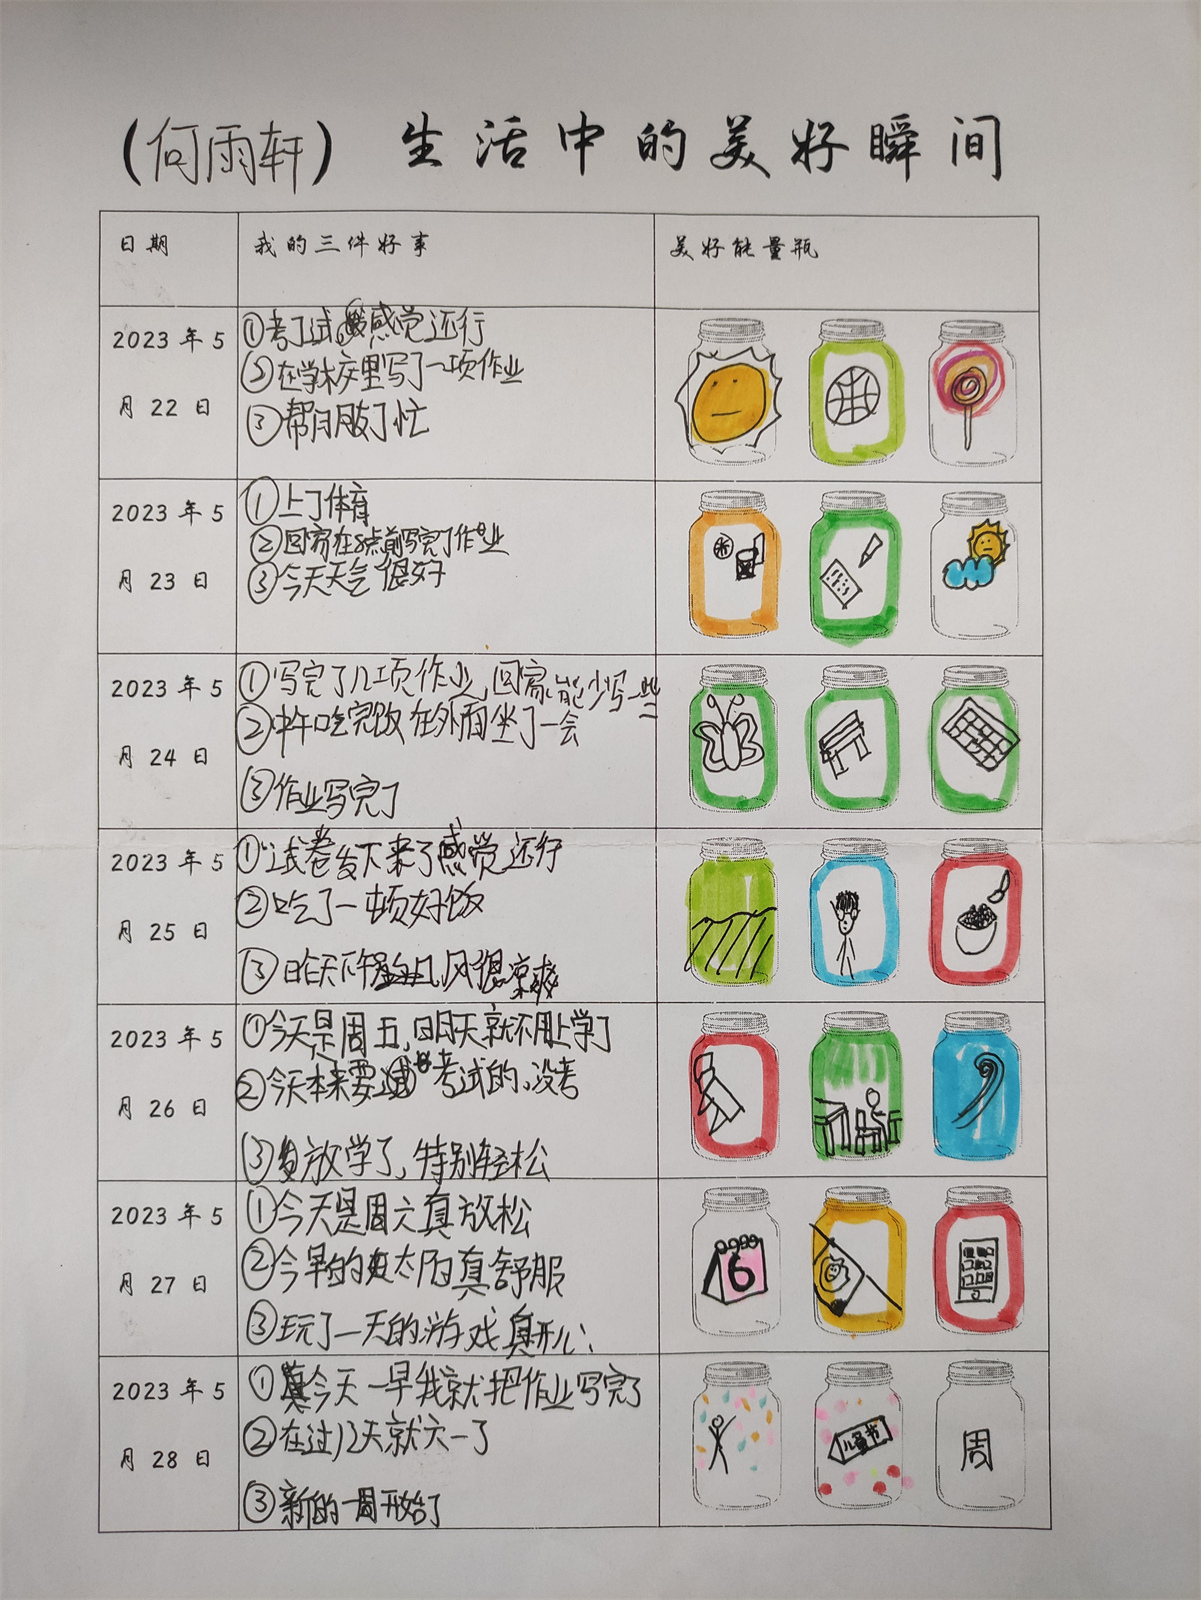 (何雨轩) 生活中的美好瞬间
日期 我的三件好事 美好能量瓶
2023年5月22日
①考了试,感觉还行
②在学校里写了一项作业
③帮月朋了忙
2023年5月23日
①上了体育
②回家在8点前写完了作业
③今天天气很好
2023年5月24日
①写完了几项作业,回家能少写一些
②中午吃完饭在外面坐了一会
③作业写完了
2023年5月25日
①试卷发下来了感觉还行
②吃了一顿好饭
③昨天下午风很凉爽
2023年5月26日
①今天是周五,明天就不用上学了
②今天本来要考试的,没考
③放学了,特别轻松
2023年5月27日
①今天是周六真放松
②今早的太阳真舒服
③玩了一天的游戏真开心
6
2023年5月28日
①今天一早我就把作业写完了
②在过几天就六一了
③新的一周开始了
儿童节
周